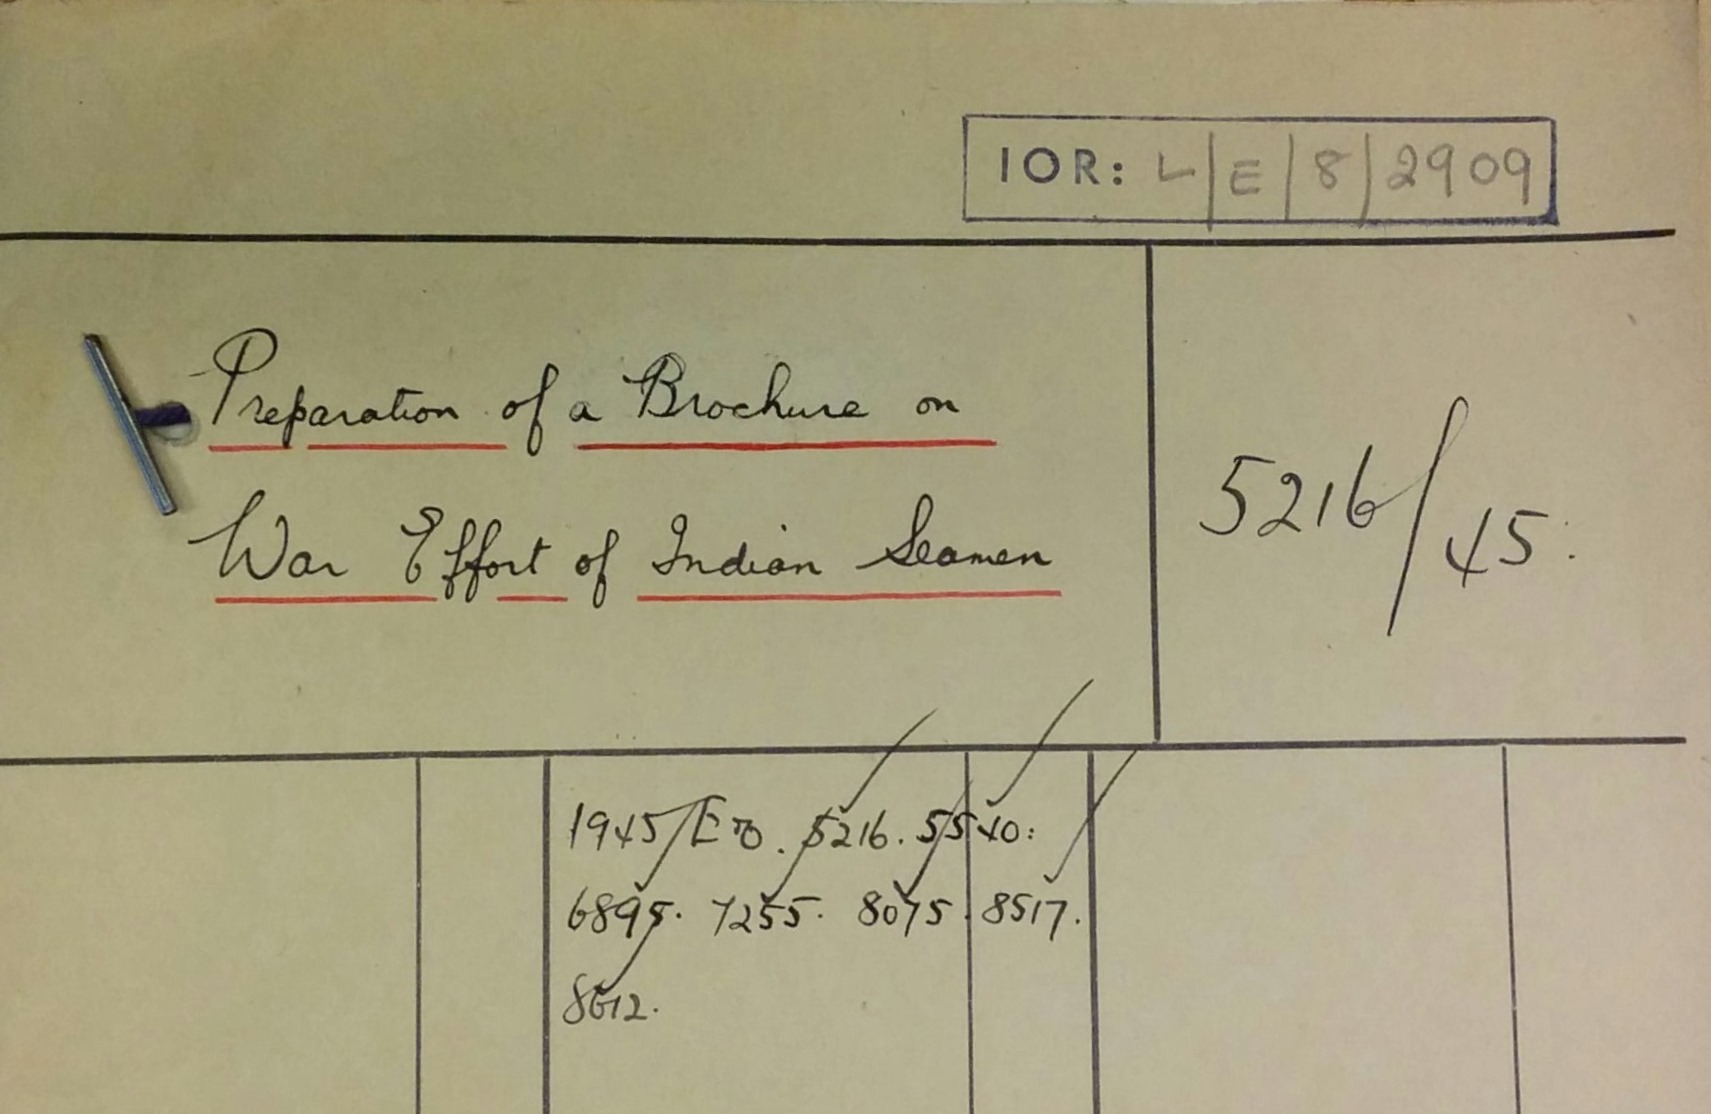 IOR: L/E/8/2909
Preparation of a Brochure on
War Effort of Indian Seamen
5216/45.
1945/E&O. 5216. 5540:
6895. 7255. 8075. 8517.
8612.